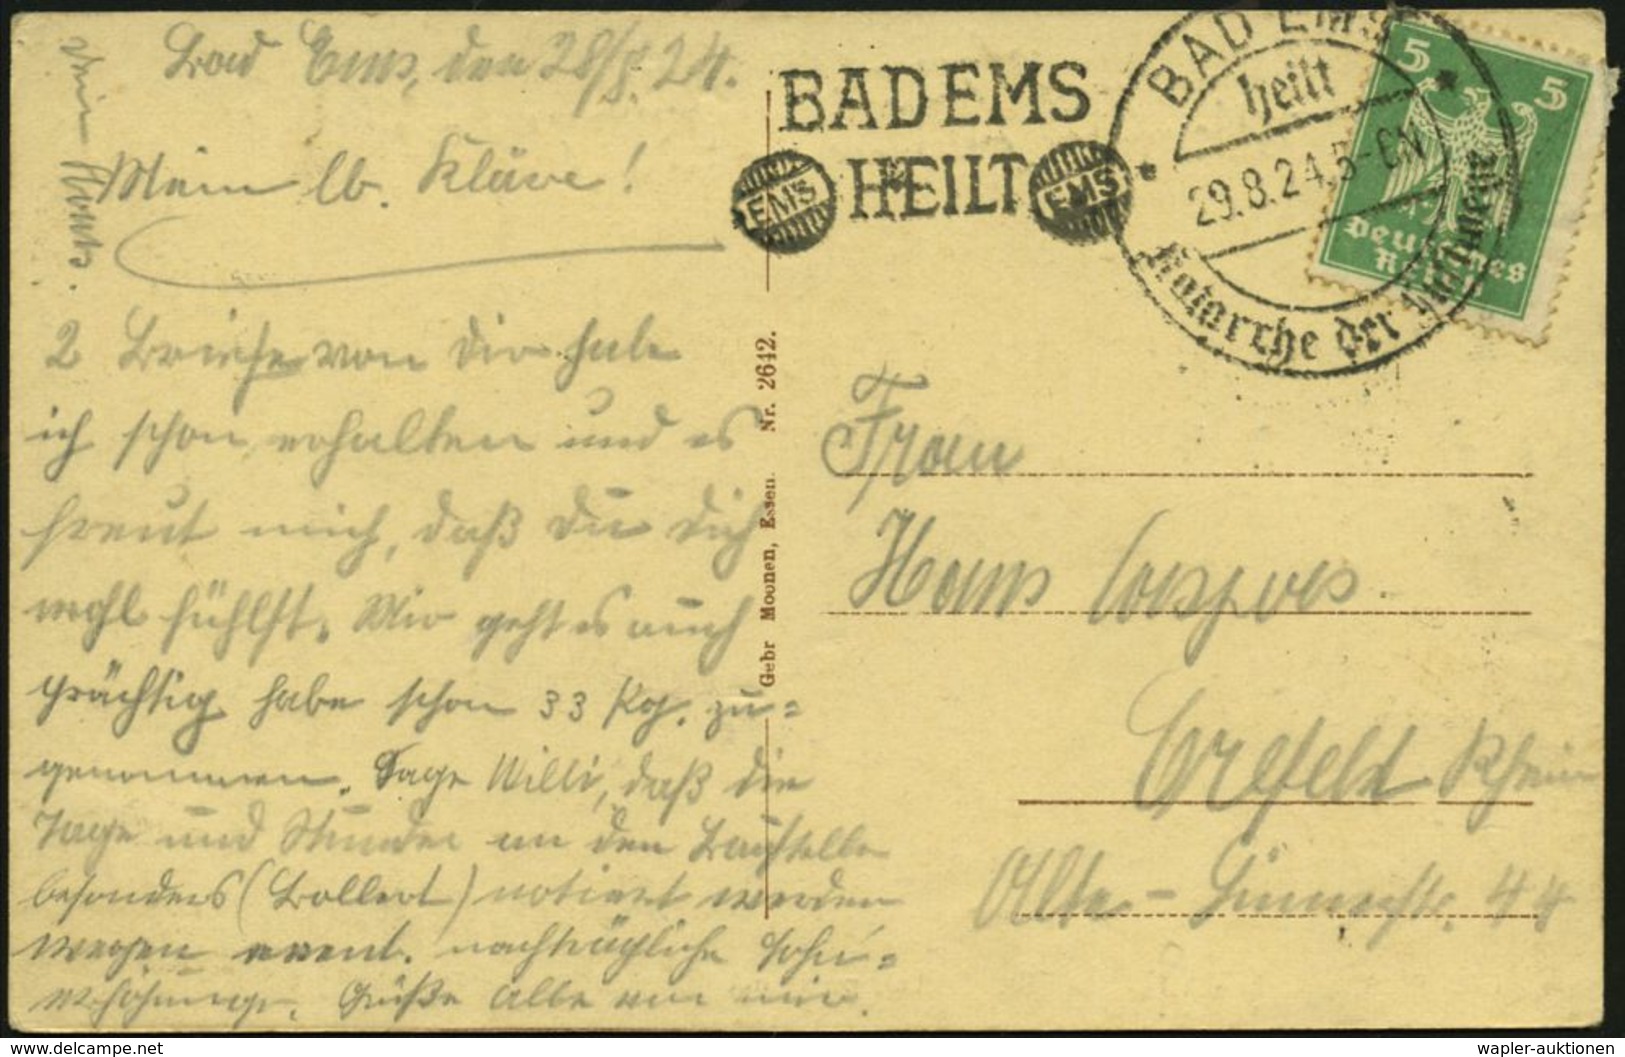 Bad Ems, den 28/8.24.
Mein lb. Kläre!
2 Briefe von Dir habe
ich schon erhalten und es
freut mich, daß Du Dich
wohl fühlst. Mir geht es auch
prächtig habe schon 33 Kg. zu=
genommen. Sage Willi, daß die
Tage und Stunden an den Baustellen
besonders (Bollert) notiert werden
wegen event. nachträgliche Lohn=
erhöhung. Grüße Alle von mir.
Dein Hans.
Gebr Moonen, Essen. Nr. 2642.
BAD EMS
HEILT
EMS
EMS
BAD EMS
heilt
29.8.24.5-6N
Katarrhe der
5
5
Deutsches
Reich
Frau
Hans Caspers
Crefeld Rhein
Alte-Linnerstr. 44
delcampe.net
wapler-auktionen